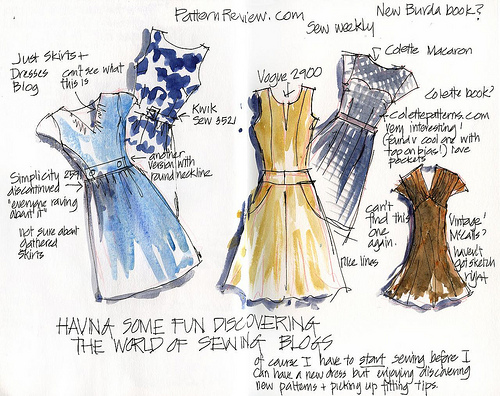 PatternReview.com
New Burda book?
Sew weekly
Just Skirts +
Dresses
Blog
can't see what
this is
Kwik
Sew 3521
Vogue 2900
Colette Macaron
Colette book?
Colettepatterns.com
very interesting!
(found a cool one with
top on bias!) love
pockets
another
version with
round neckline
Simplicity
discontinued
"everyone raving
about it"
not sure about
gathered
skirts
can't
find this
one
again.
nice lines
Vintage!
McCalls?
haven't
got sketch
right
HAVING SOME FUN DISCOVERING
THE WORLD OF SEWING BLOGS
of course I have to start sewing before I
can have a new dress but enjoying discovering
new patterns + picking up fitting tips.